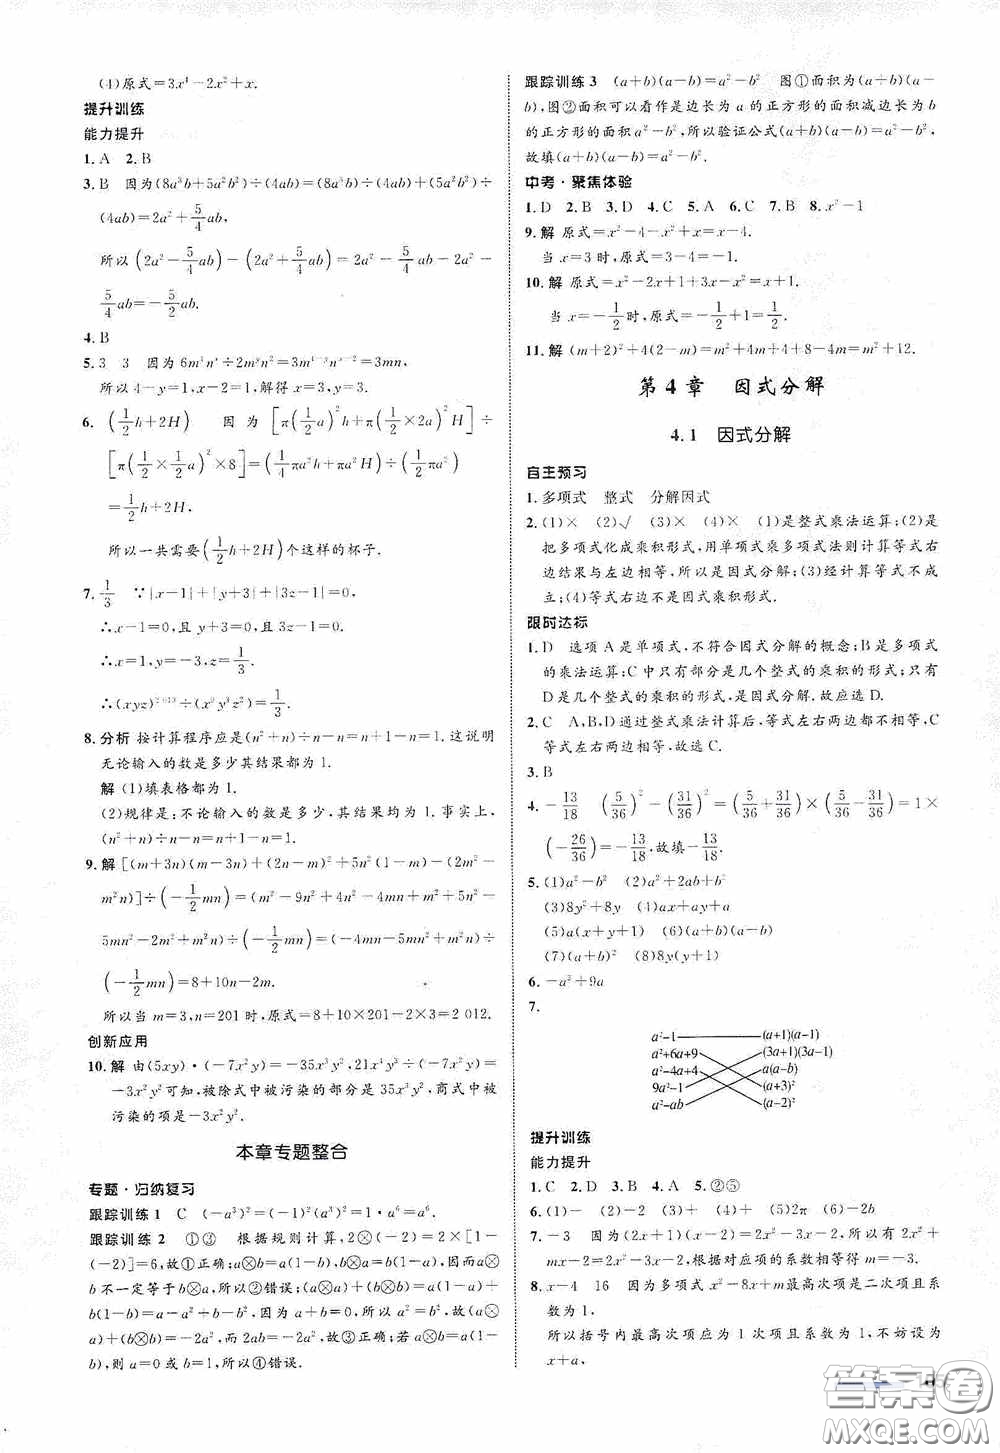 (4)原式=3x⁴-2x²+x.
提升训练
能力提升
1. A 2. B
3. B 因为(8a³b+5a²b²)÷(4ab)=(8a³b)÷(4ab)+(5a²b²)÷
(4ab)=2a²+5/4ab,
所以(2a²-5/4ab)-(2a²+5/4ab)=2a²-5/4ab-2a²-
5/4ab=-5/2ab.
4. B
5. 3 3 因为6m⁴nˣ÷2mʸn²=3m⁴⁻ʸnˣ⁻²=3mn,
所以4-y=1,x-2=1,解得x=3,y=3.
6. (1/2h+2H) 因为[π(1/2a)²h+π(1/2×2a)²H]÷
[π(1/2×1/2a)²×8]=(1/4πa²h+πa²H)÷(1/2πa²)
=1/2h+2H,
所以一共需要(1/2h+2H)个这样的杯子.
7. 1/3 ∵|x-1|+|y+3|+|3z-1|=0,
∴x-1=0,且y+3=0,且3z-1=0.
∴x=1,y=-3,z=1/3.
∴(xyz)²⁰¹³÷(x⁹y³z²)=1/3.
8. 分析 按计算程序应是(n²+n)÷n-n=1.这说明
无论输入的数是多少其结果都为1.
解 (1)填表格都为1.
(2)规律是:不论输入的数是多少,其结果均为1.事实上,
(n²+n)÷n-n=n+1-n=1.
9. 解 [(m+3n)(m-3n)+(2n-m)²+5n²(1-m)-(2m²-
m²n)]÷(-1/2mn)=(m²-9n²+4n²-4mn+m²+5n²-
5mn²-2m²+m²n)÷(-1/2mn)=(-4mn-5mn²+m²n)÷
(-1/2mn)=8+10n-2m.
所以当m=3,n=201时,原式=8+10×201-2×3=2 012.
创新应用
10. 解 由(5xy)·(-7x²y)=-35x³y²,21x⁴y³÷(-7x²y)=
-3x²y²可知,被除式中被污染的部分是35x³y²,商式中被
污染的项是-3x²y².
本章专题整合
专题·归纳复习
跟踪训练1 C (-a³)²=(-1)²(a³)²=1·a⁶=a⁶.
跟踪训练2 ①③ 根据规则计算,2⊗(-2)=2×[1-
(-2)]=6,故①正确;a⊗b=a(1-b),b⊗a=b(1-a),a⊗
b不一定等于b⊗a,所以②错误;(a⊗a)+(b⊗b)=a(1-a)+
b(1-b)=a-a²+b-b²,因为a+b=0,所以a²=b²,故(a⊗
a)+(b⊗b)=-2a²,而2ab=-2a²,故③正确;若a⊗b=a(1-
b),则a=0或b=1,所以④错误.
跟踪训练3 (a+b)(a-b)=a²-b² 图①面积为(a+b)(a-
b),图②面积可以看作是边长为a的正方形的面积减边长为b
的正方形的面积a²-b²,所以验证公式(a+b)(a-b)=a²-b².
故填(a+b)(a-b)=a²-b².
中考·聚焦体验
1. D 2. B 3. D 4. C 5. A 6. C 7. B 8. x²-1
9. 解 原式=x²-4-x²+x=x-4.
当x=3时,原式=3-4=-1.
10. 解 原式=x²-2x+1+3x-x²=x+1.
当x=-1/2时,原式=-1/2+1=1/2.
11. 解 (m+2)²+4(2-m)=m²+4m+4+8-4m=m²+12.
第4章 因式分解
4.1 因式分解
自主预习
1. 多项式 整式 分解因式
2. (1)× (2)√ (3)× (4)× (1)是整式乘法运算;(2)是
把多项式化成乘积形式,用单项式乘多项式法则计算等式右
边结果与左边相等,所以是因式分解;(3)经计算等式不成
立;(4)等式右边不是因式乘积形式.
限时达标
1. D 选项A是单项式,不符合因式分解的概念;B是多项式
的乘法运算;C中只有部分是几个整式的乘积的形式;只有
D是几个整式的乘积的形式,是因式分解.故应选D.
2. C A,B,D通过整式乘法计算后,等式左右两边都不相等,C
等式左右两边相等,故选C.
3. B
4. -13/18 (5/36)²-(31/36)²=(5/36+31/36)×(5/36-31/36)=1×
(-26/36)=-13/18,故填-13/18.
5. (1)a²-b² (2)a²+2ab+b²
(3)8y²+8y (4)ax+ay+a
(5)a(x+y+1) (6)(a+b)(a-b)
(7)(a+b)² (8)8y(y+1)
6. -a²+9a
7.
a²-1 (a+1)(a-1)
a²+6a+9 (3a+1)(3a-1)
a²-4a+4 a(a-b)
9a²-1 (a+3)²
a²-ab (a-2)²
提升训练
能力提升
1. C 2. D 3. B 4. A 5. ②⑤
6. (1)- (2)- (3)+ (4)+ (5)2π (6)-2b
7. -3 因为(2x+1)(x-2)=2x²-3x-2,所以有2x²+
mx-2=2x²-3x-2,根据对应项的系数相等得m=-3.
8. x-4 16 因为多项式x²-8x+m最高次项是二次项且系
数为1,
所以括号内最高次项应为1次项且系数为1,不妨设为
x+a,
答案圈
MXQE.COM